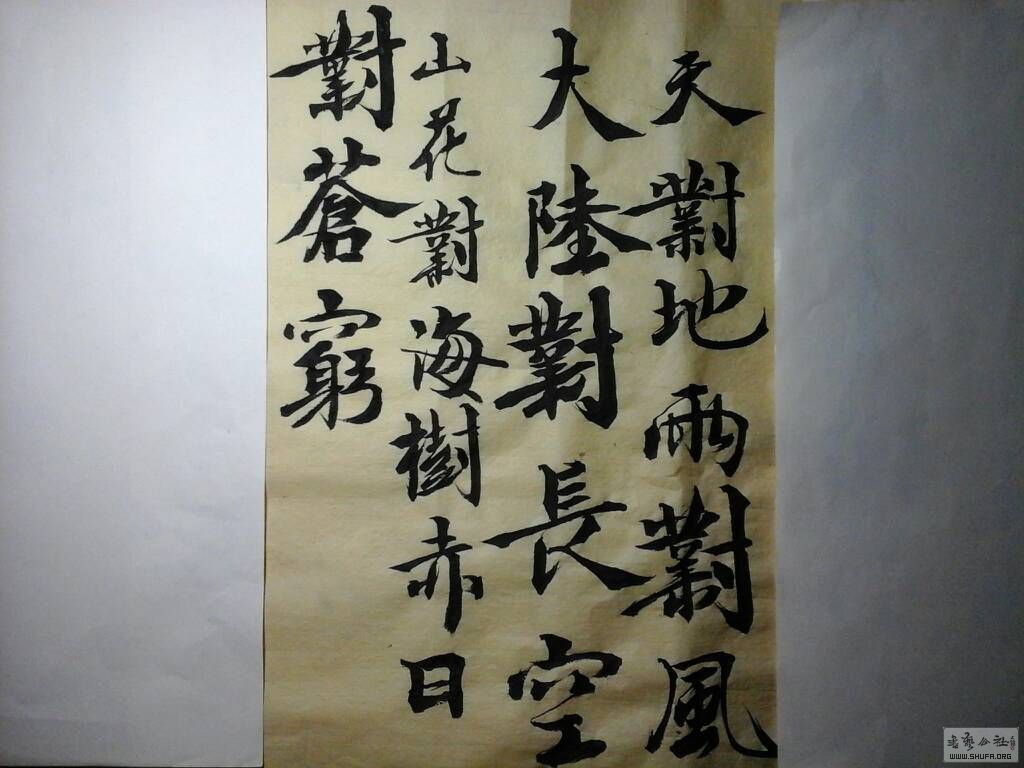 天對地雨對風
大陸對長空
山花對海樹赤日
對蒼窮
书艺公社
WWW.SHUFA.ORG